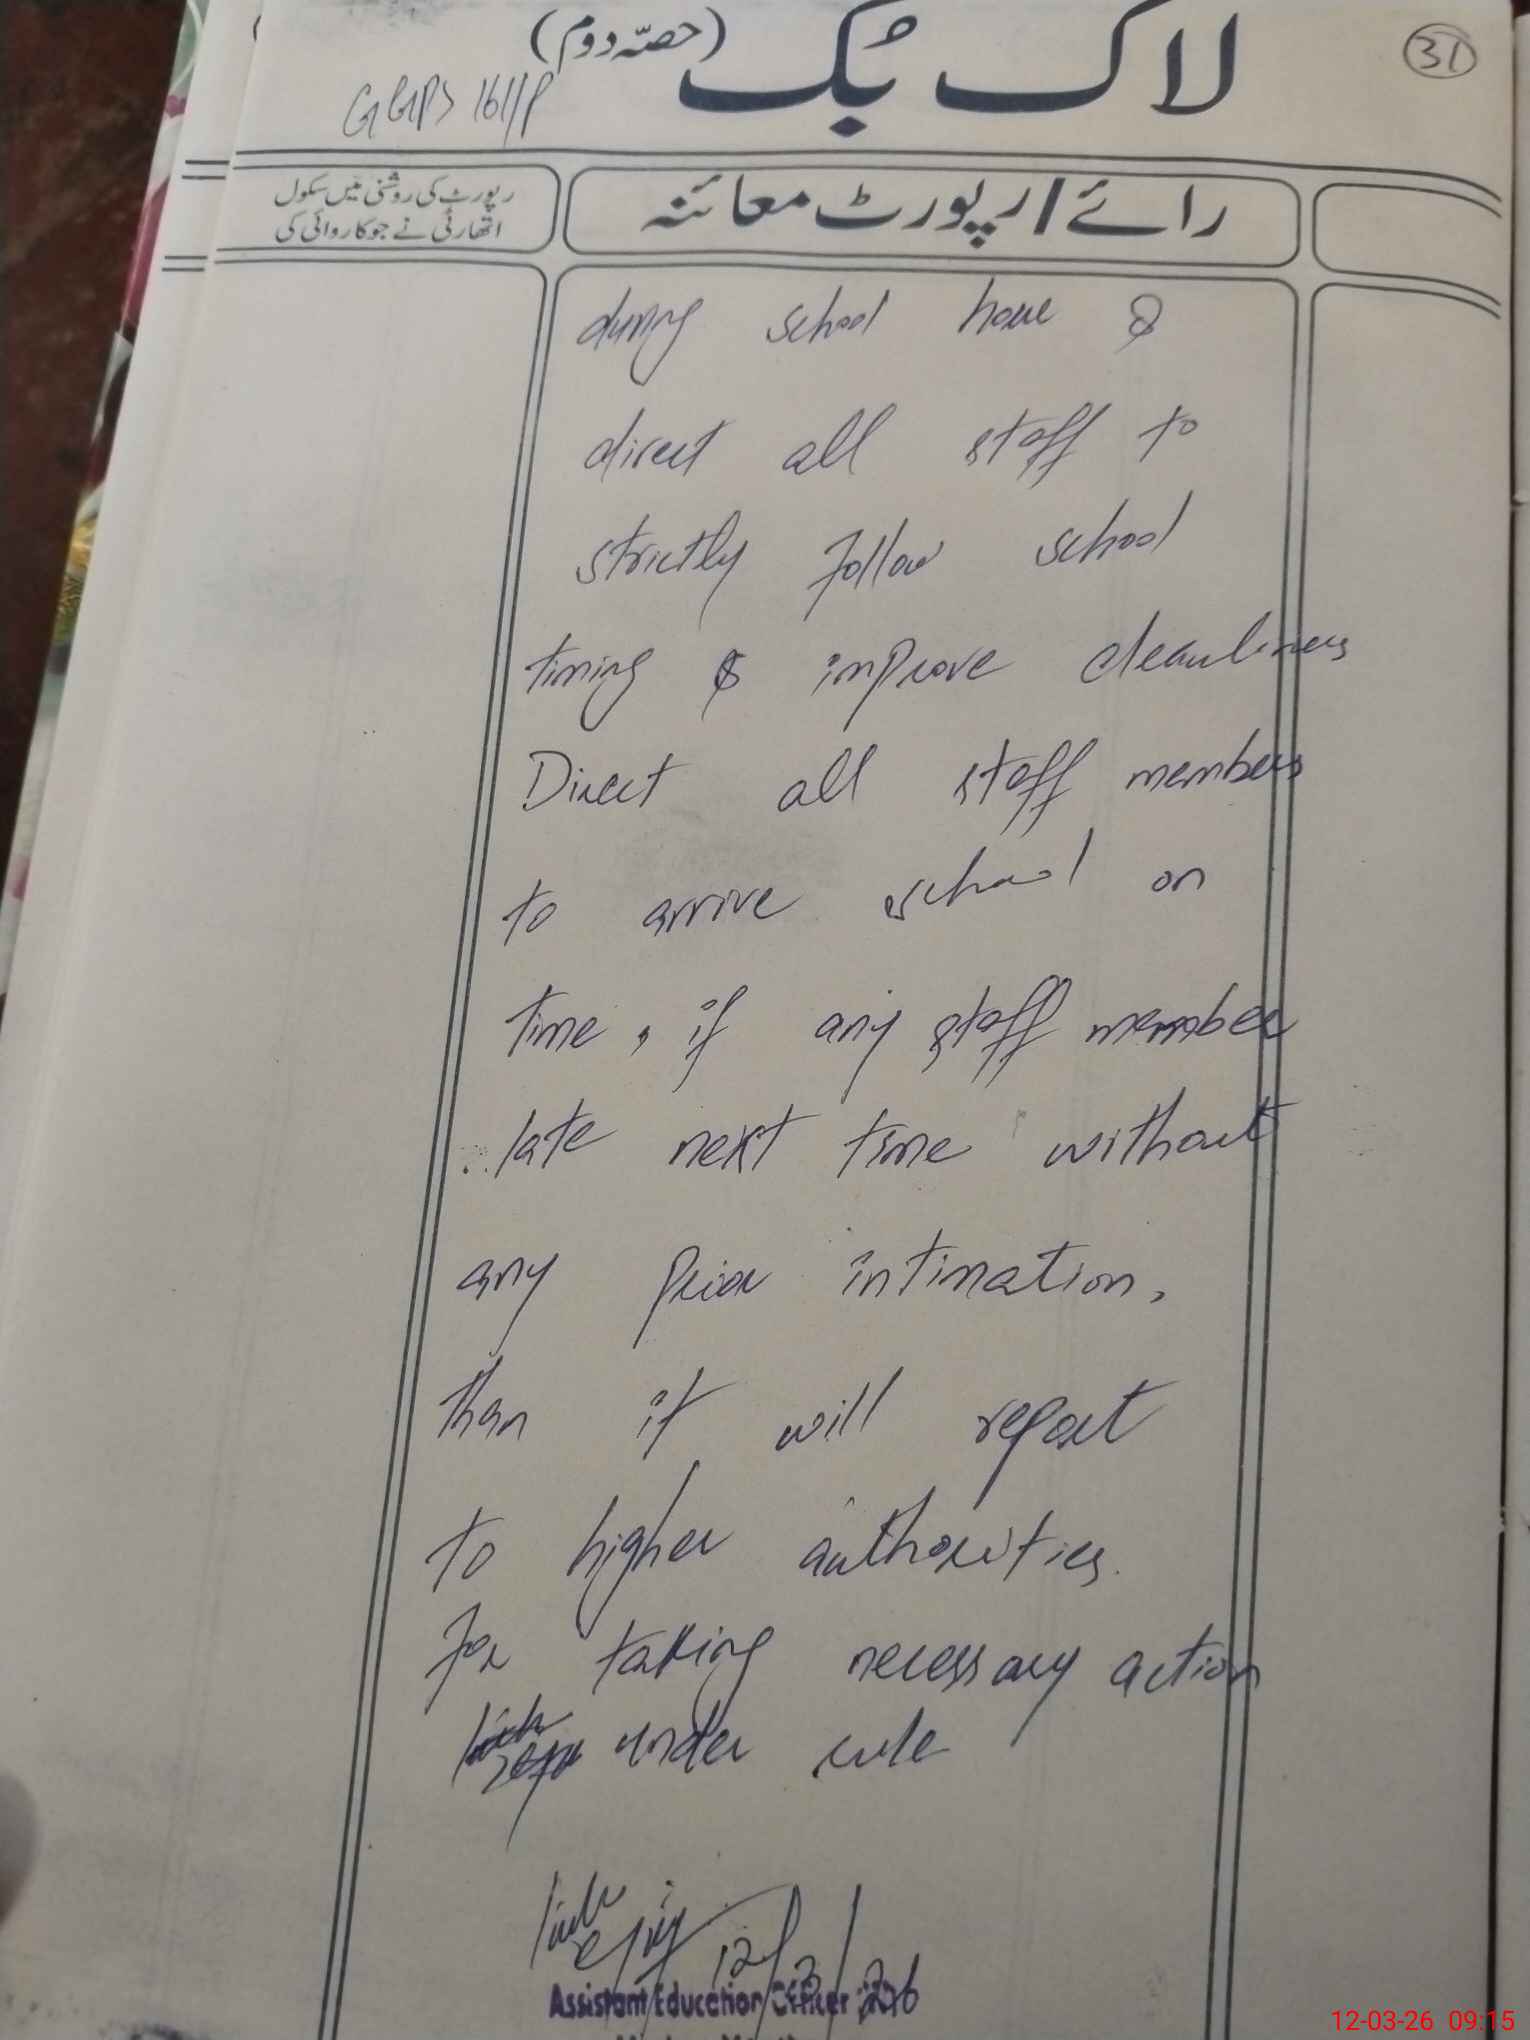 لاک بُک (حصّہ دوم)
31
GGPS 161/P
رائے / رپورٹ معائنہ
رپورٹ کی روشنی میں سکول
اتھارٹی نے جو کاروائی کی
during school hour &
direct all staff to
strictly follow school
timing & improve cleanliness
Direct all staff members
to arrive school on
time, if any staff member
late next time without
any prior intimation,
than it will report
to higher authorities.
for taking necessary action
under rule
12/3/26
Assistant Education Officer
12-03-26 09:15